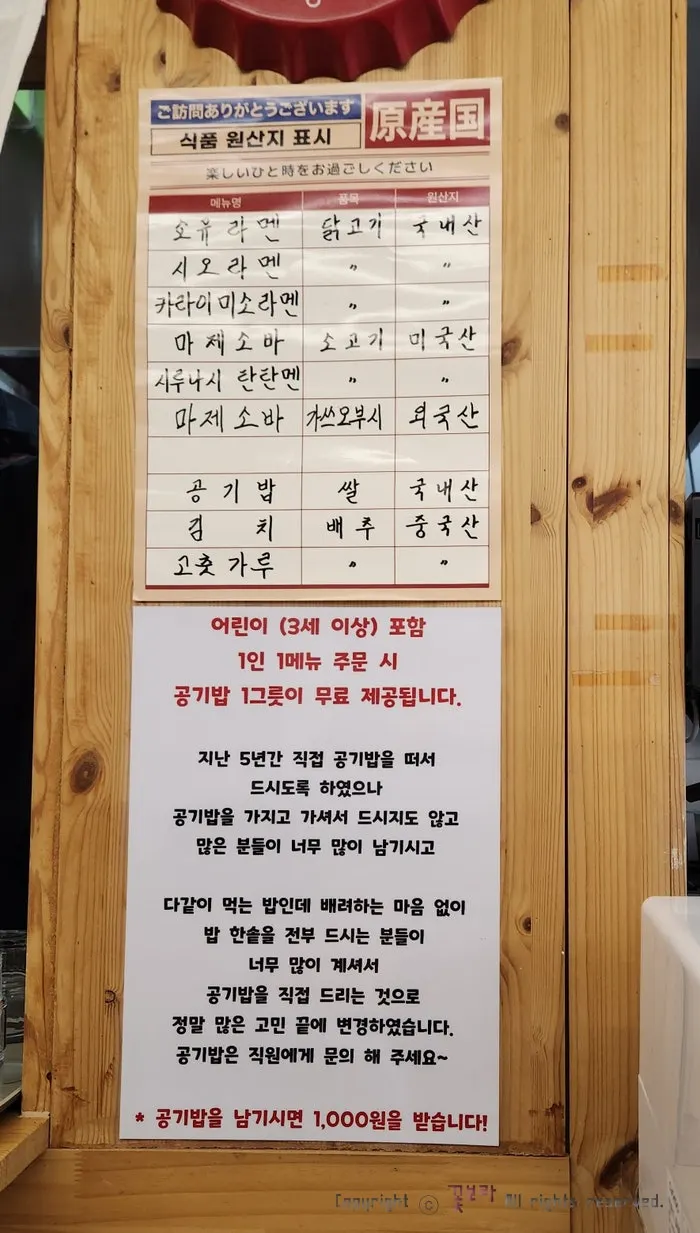 ご訪問ありがとうございます
식품 원산지 표시
原産国
楽しいひと時をお過ごしください
메뉴명 품목 원산지
소유라멘 닭고기 국내산
시오라멘 〃 〃
카라이미소라멘 〃 〃
마제소바 소고기 미국산
시루나시 탄탄멘 〃 〃
마제소바 가쓰오부시 외국산
공기밥 쌀 국내산
김치 배추 중국산
고춧가루 〃 〃
어린이 (3세 이상) 포함
1인 1메뉴 주문 시
공기밥 1그릇이 무료 제공됩니다.
지난 5년간 직접 공기밥을 떠서
드시도록 하였으나
공기밥을 가지고 가셔서 드시지도 않고
많은 분들이 너무 많이 남기시고
다같이 먹는 밥인데 배려하는 마음 없이
밥 한솥을 전부 드시는 분들이
너무 많이 계셔서
공기밥을 직접 드리는 것으로
정말 많은 고민 끝에 변경하였습니다.
공기밥은 직원에게 문의 해 주세요~
* 공기밥을 남기시면 1,000원을 받습니다!
Copyright ⓒ All rights reserved.